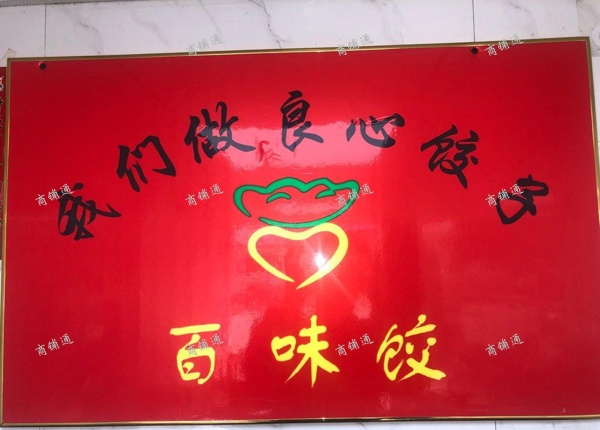 我们做良心饺子
百味饺
商铺通 商铺通 商铺通
商铺通 商铺通 商铺通 商铺通
商铺通 商铺通 商铺通 商铺通